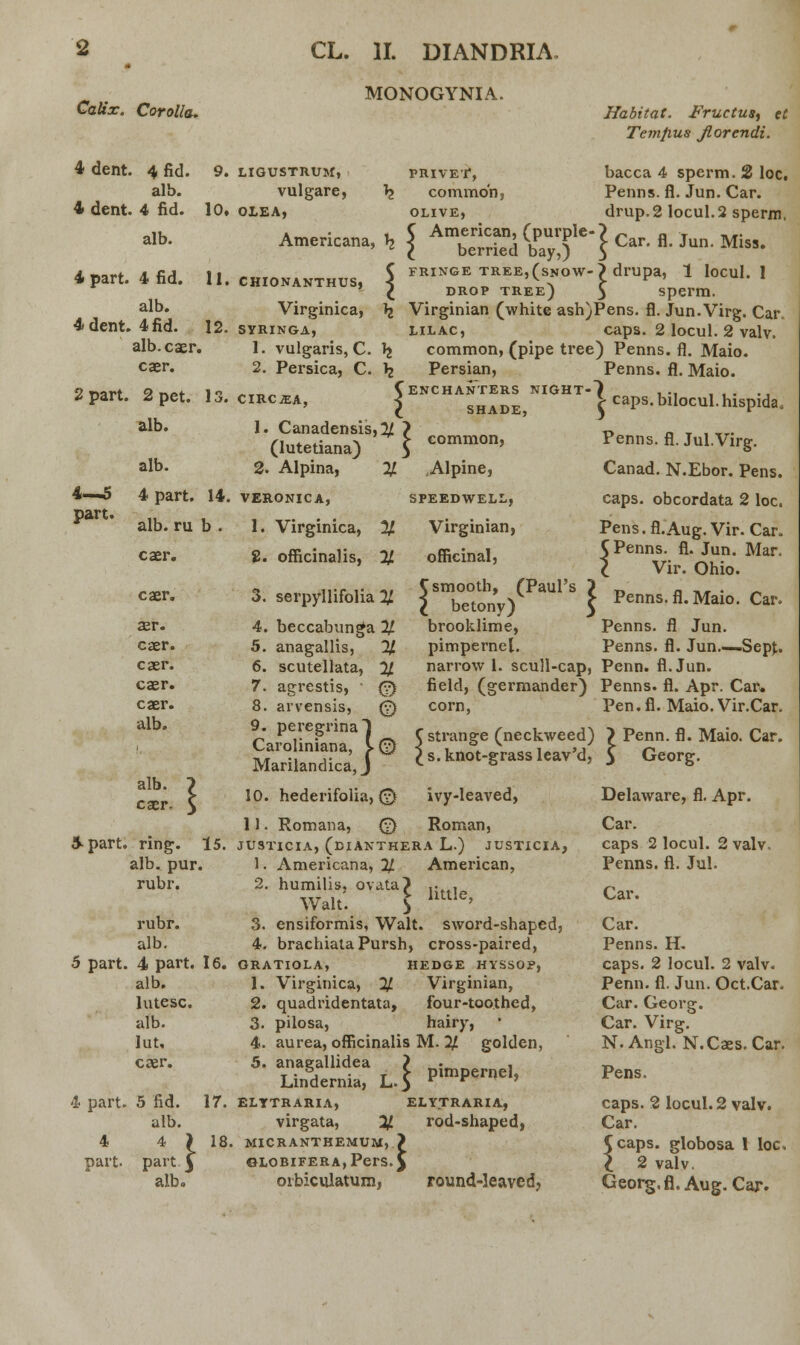 2 CL. II. DIANDRIA.
MONOGYNIA.
Calix. Corolla. Habitat. Fructus, et
Tempus florendi.
4 dent. 4 fid. 9. LIGUSTRUM, PRIVET, bacca 4 sperm. 2 loc.
alb. vulgare, ♄ common, Penns. fl. Jun. Car.
4 dent. 4 fid. 10. OLEA, OLIVE, drup. 2 locul. 2 sperm.
alb. Americana, ♄ { American, (purple-berried bay,) } Car. fl. Jun. Miss.
4 part. 4 fid. 11. CHIONANTHUS, { FRINGE TREE, (SNOW-DROP TREE) } drupa, 1 locul. 1 sperm.
alb. Virginica, ♄ Virginian (white ash) Pens. fl. Jun. Virg. Car.
4 dent. 4 fid. 12. SYRINGA, LILAC, caps. 2 locul. 2 valv.
alb. cær. 1. vulgaris, C. ♄ common, (pipe tree) Penns. fl. Maio.
cær. 2. Persica, C. ♄ Persian, Penns. fl. Maio.
2 part. 2 pet. 13. CIRCÆA, { ENCHANTERS NIGHT-SHADE, } caps. bilocul. hispida.
alb. 1. Canadensis, ♃ (lutetiana) } common, Penns. fl. Jul. Virg.
alb. 2. Alpina, ♃ Alpine, Canad. N. Ebor. Pens.
4—5 part. 4 part. 14. VERONICA, SPEEDWELL, caps. obcordata 2 loc.
alb. ru b . 1. Virginica, ♃ Virginian, Pens. fl. Aug. Vir. Car.
cær. 2. officinalis, ♃ officinal, { Penns. fl. Jun. Mar. Vir. Ohio.
cær. 3. serpyllifolia ♃ { smooth, (Paul's betony) } Penns. fl. Maio. Car.
ær. 4. beccabunga ♃ brooklime, Penns. fl Jun.
cær. 5. anagallis, ♃ pimpernel. Penns. fl. Jun.—Sept.
cær. 6. scutellata, ♃ narrow l. scull-cap, Penn. fl. Jun.
cær. 7. agrestis, ☉ field, (germander) Penns. fl. Apr. Car.
cær. 8. arvensis, ☉ corn, Pen. fl. Maio. Vir. Car.
alb. 9. peregrina Caroliniana, Marilandica, } ☉ { strange (neckweed) s. knot-grass leav'd, } Penn. fl. Maio. Car. Georg.
alb. cær. } 10. hederifolia, ☉ ivy-leaved, Delaware, fl. Apr.
11. Romana, ☉ Roman, Car.
5 part. ring. 15. JUSTICIA, (DIANTHERA L.) JUSTICIA, caps 2 locul. 2 valv.
alb. pur. 1. Americana, ♃ American, Penns. fl. Jul.
rubr. 2. humilis, ovata Walt. } little, Car.
rubr. 3. ensiformis, Walt. sword-shaped, Car.
alb. 4. brachiata Pursh, cross-paired, Penns. H.
5 part. 4 part. 16. GRATIOLA, HEDGE HYSSOP, caps. 2 locul. 2 valv.
alb. 1. Virginica, ♃ Virginian, Penn. fl. Jun. Oct. Car.
lutesc. 2. quadridentata, four-toothed, Car. Georg.
alb. 3. pilosa, hairy, Car. Virg.
lut. 4. aurea, officinalis M. ♃ golden, N. Angl. N. Cæs. Car.
cær. 5. anagallidea Lindernia, L. } pimpernel, Pens.
4 part. 5 fid. 17. ELYTRARIA, ELYTRARIA, caps. 2 locul. 2 valv.
alb. virgata, ♃ rod-shaped, Car.
4 part. 4 part } 18. MICRANTHEMUM, GLOBIFERA, Pers. } { caps. globosa 1 loc. 2 valv.
alb. orbiculatum, round-leaved, Georg. fl. Aug. Car.